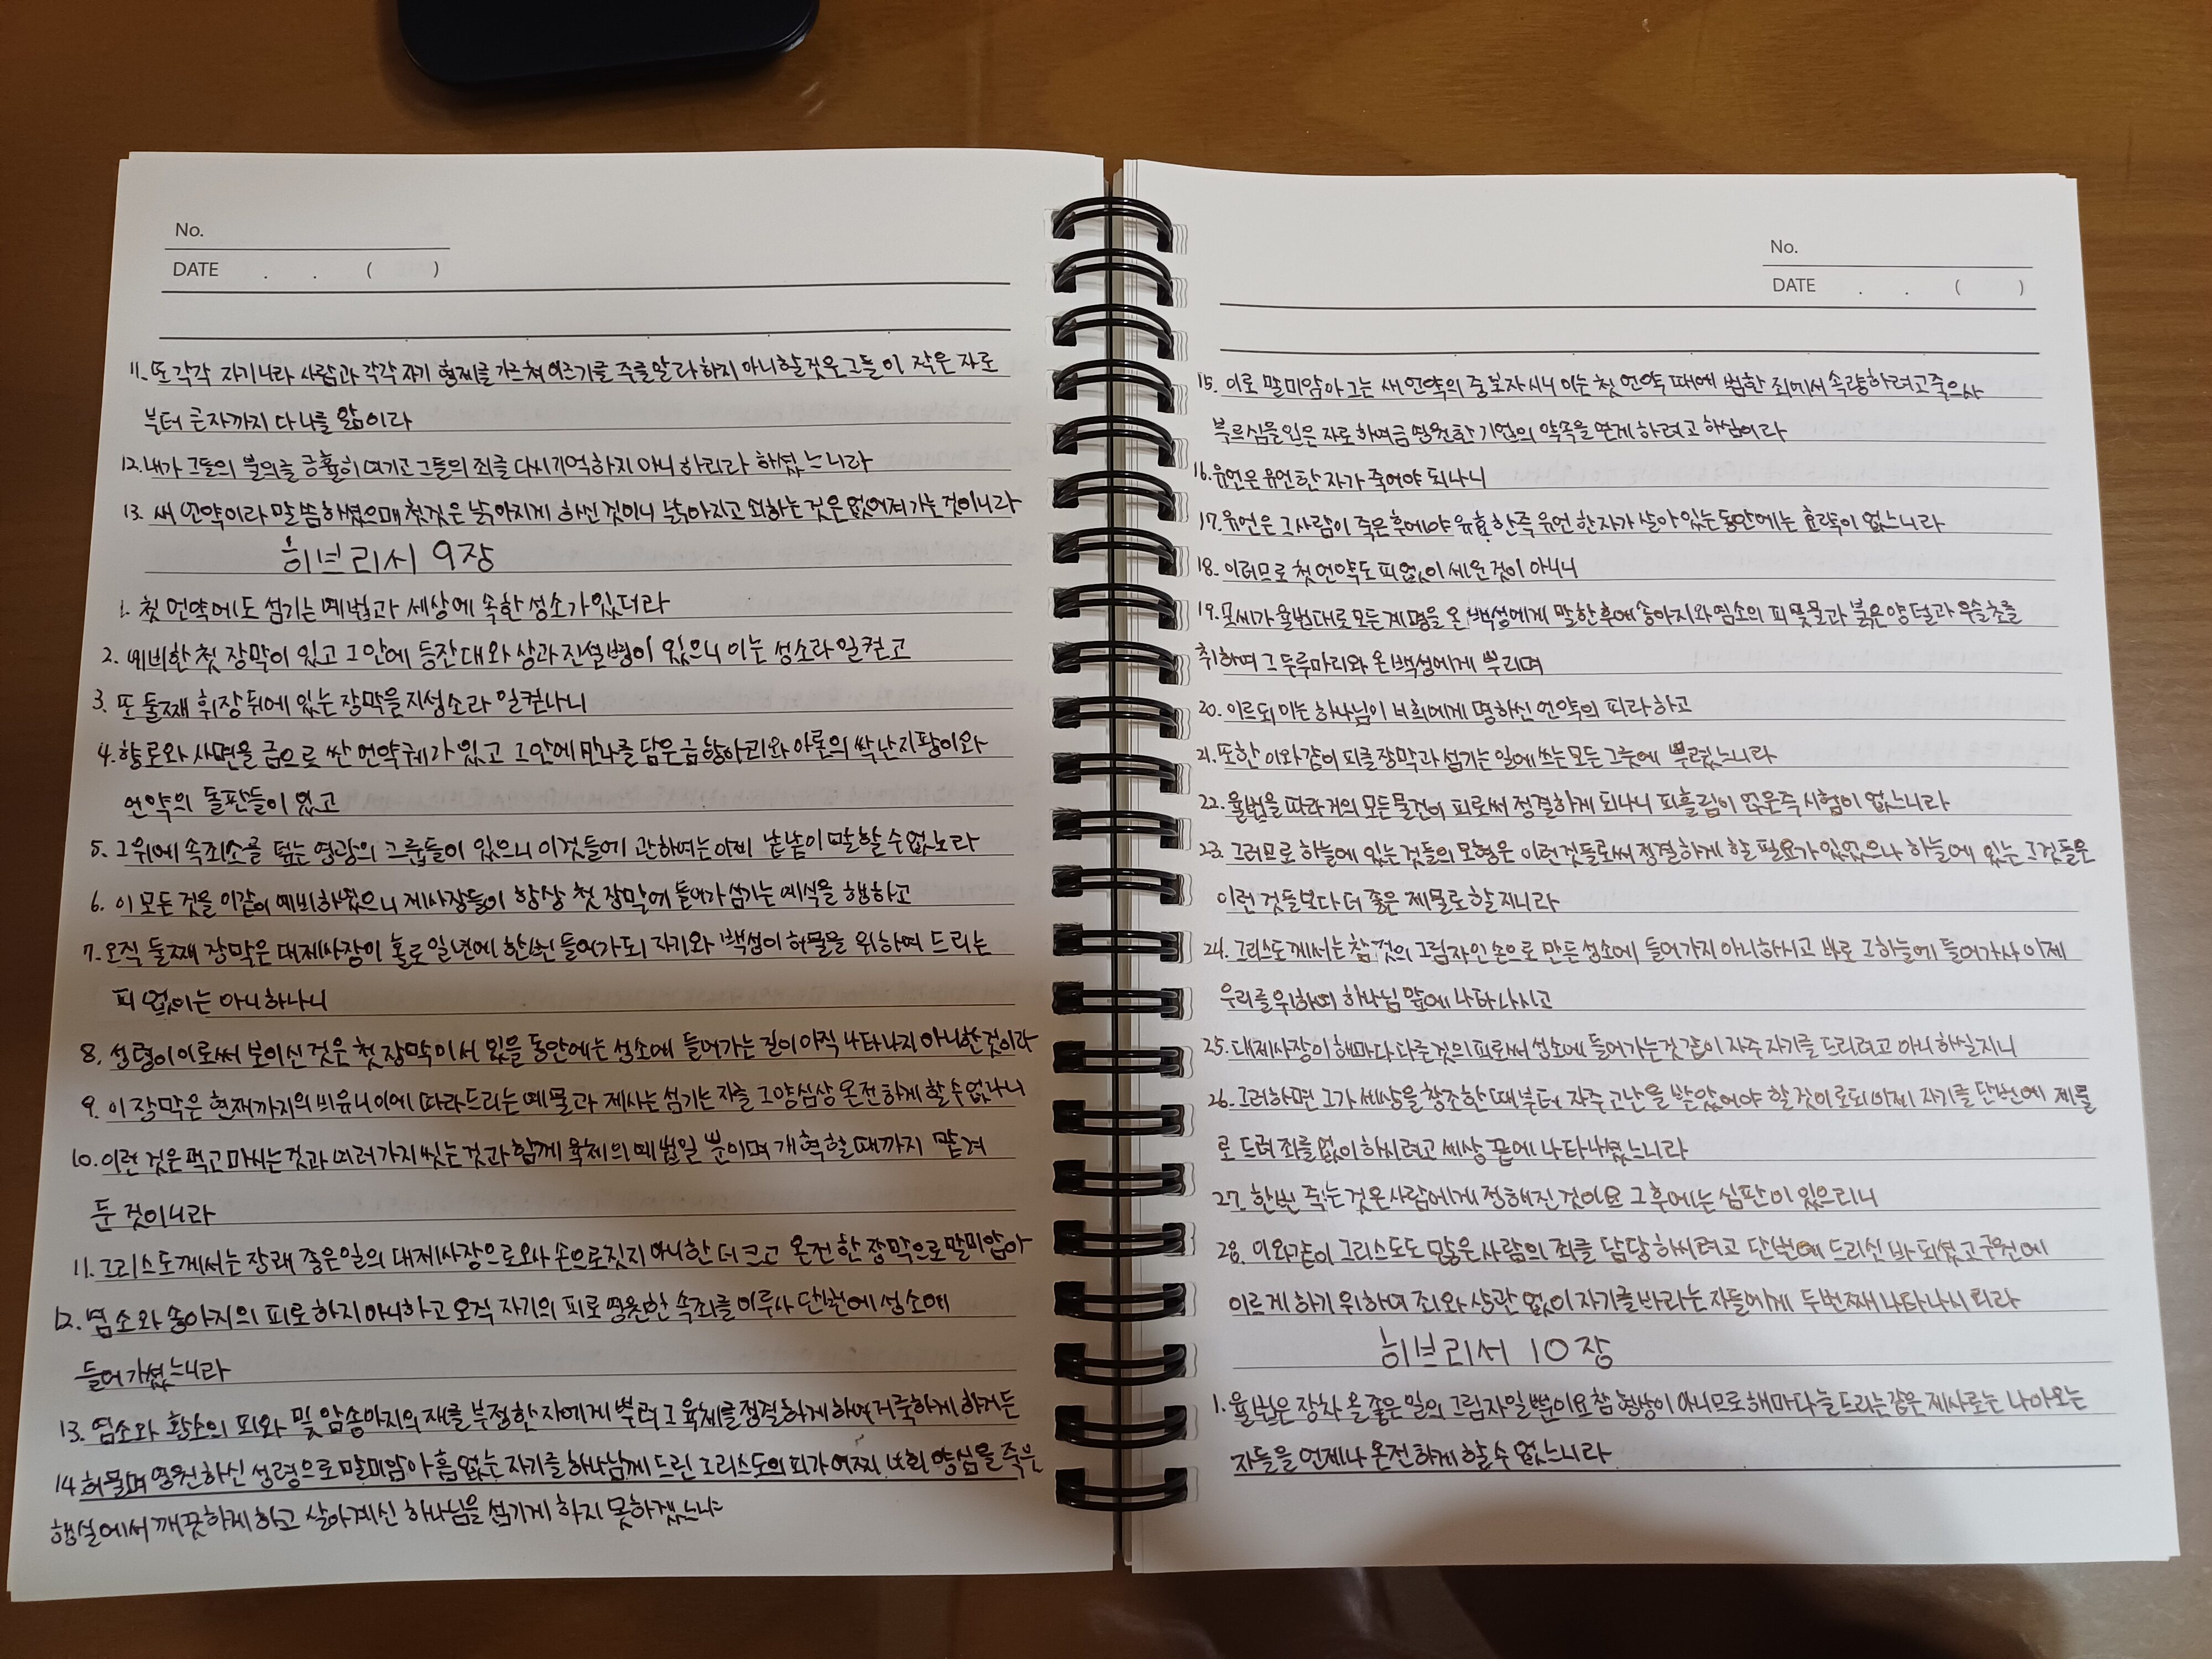 No.
DATE . . ( )
11. 또 각각 자기 나라 사람과 각각 자기 형제를 가르쳐 이르기를 주를 알라 하지 아니할 것은 그들이 작은 자로
부터 큰 자까지 다 나를 앎이라
12. 내가 그들의 불의를 긍휼히 여기고 그들의 죄를 다시 기억하지 아니 하리라 하셨느니라
13. 새 언약이라 말씀하셨으매 첫것은 낡아지게 하신 것이니 낡아지고 쇠하는 것은 없어져 가는 것이니라
히브리서 9장
1. 첫 언약에도 섬기는 예법과 세상에 속한 성소가 있더라
2. 예비한 첫 장막이 있고 그 안에 등잔대와 상과 진설병이 있으니 이는 성소라 일컫고
3. 또 둘째 휘장 뒤에 있는 장막을 지성소라 일컫나니
4. 향로와 사면을 금으로 싼 언약궤가 있고 그 안에 만나를 담은 금 항아리와 아론의 싹난 지팡이와
언약의 돌판들이 있고
5. 그 위에 속죄소를 덮는 영광의 그룹들이 있으니 이것들에 관하여는 이제 낱낱이 말할 수 없노라
6. 이 모든 것을 이같이 예비하였으니 제사장들이 항상 첫 장막에 들어가 섬기는 예식을 행하고
7. 오직 둘째 장막은 대제사장이 홀로 일년에 한 번 들어가되 자기와 백성이 허물을 위하여 드리는
피 없이는 아니하나니
8. 성령이 이로써 보이신 것은 첫 장막이 서 있을 동안에는 성소에 들어가는 길이 아직 나타나지 아니한 것이라
9. 이 장막은 현재까지의 비유니 이에 따라 드리는 예물과 제사는 섬기는 자를 그 양심상 온전하게 할 수 없나니
10. 이런 것은 먹고 마시는 것과 여러 가지 씻는 것과 함께 육체의 예법일 뿐이며 개혁할 때까지 맡겨
둔 것이니라
11. 그리스도께서는 장래 좋은 일의 대제사장으로 와 손으로 짓지 아니한 더 크고 온전한 장막으로 말미암아
12. 염소와 송아지의 피로 하지 아니하고 오직 자기의 피로 영원한 속죄를 이루사 단번에 성소에
들어가셨느니라
13. 염소와 황소의 피와 및 암송아지의 재를 부정한 자에게 뿌려 그 육체를 정결하게 하여 거룩하게 하거든
14. 하물며 영원하신 성령으로 말미암아 흠 없는 자기를 하나님께 드린 그리스도의 피가 어찌 너희 양심을 죽은
행실에서 깨끗하게 하고 살아계신 하나님을 섬기게 하지 못하겠느냐
No.
DATE . . ( )
15. 이로 말미암아 그는 새 언약의 중보자시니 이는 첫 언약 때에 범한 죄에서 속량하려고 죽으사
부르심을 입은 자로 하여금 영원한 기업의 약속을 얻게 하려고 하심이라
16. 유언은 유언한 자가 죽어야 되나니
17. 유언은 그 사람이 죽은 후에야 유효한즉 유언 한 자가 살아 있는 동안에는 효력이 없느니라
18. 이러므로 첫 언약도 피 없이 세운 것이 아니니
19. 모세가 율법대로 모든 계명을 온 백성에게 말한 후에 송아지와 염소의 피 및 물과 붉은 양털과 우슬초를
취하여 그 두루마리와 온 백성에게 뿌리며
20. 이르되 이는 하나님이 너희에게 명하신 언약의 피라 하고
21. 또한 이와 같이 피를 장막과 섬기는 일에 쓰는 모든 그릇에 뿌렸느니라
22. 율법을 따라 거의 모든 물건이 피로써 정결하게 되나니 피흘림이 없은즉 시험이 없느니라
23. 그러므로 하늘에 있는 것들의 모형은 이런 것들로써 정결하게 할 필요가 있었으나 하늘에 있는 그것들은
이런 것들보다 더 좋은 제물로 할지니라
24. 그리스도께서는 참 것의 그림자인 손으로 만든 성소에 들어가지 아니하시고 바로 그 하늘에 들어가사 이제
우리를 위하여 하나님 앞에 나타나시고
25. 대제사장이 해마다 다른 것의 피로써 성소에 들어가는 것 같이 자주 자기를 드리려고 아니하실지니
26. 그러하면 그가 세상을 창조한 때부터 자주 고난을 받았어야 할 것이로되 이제 자기를 단번에 제물
로 드려 죄를 없이 하시려고 세상 끝에 나타나셨느니라
27. 한번 죽는 것은 사람에게 정해진 것이요 그 후에는 심판이 있으리니
28. 이와 같이 그리스도도 많은 사람의 죄를 담당하시려고 단번에 드리신 바 되셨고 구원에
이르게 하기 위하여 죄와 상관 없이 자기를 바라는 자들에게 두번째 나타나시리라
히브리서 10장
1. 율법은 장차 올 좋은 일의 그림자일 뿐이요 참 형상이 아니므로 해마다 늘 드리는 같은 제사로는 나아오는
자들을 언제나 온전하게 할 수 없느니라